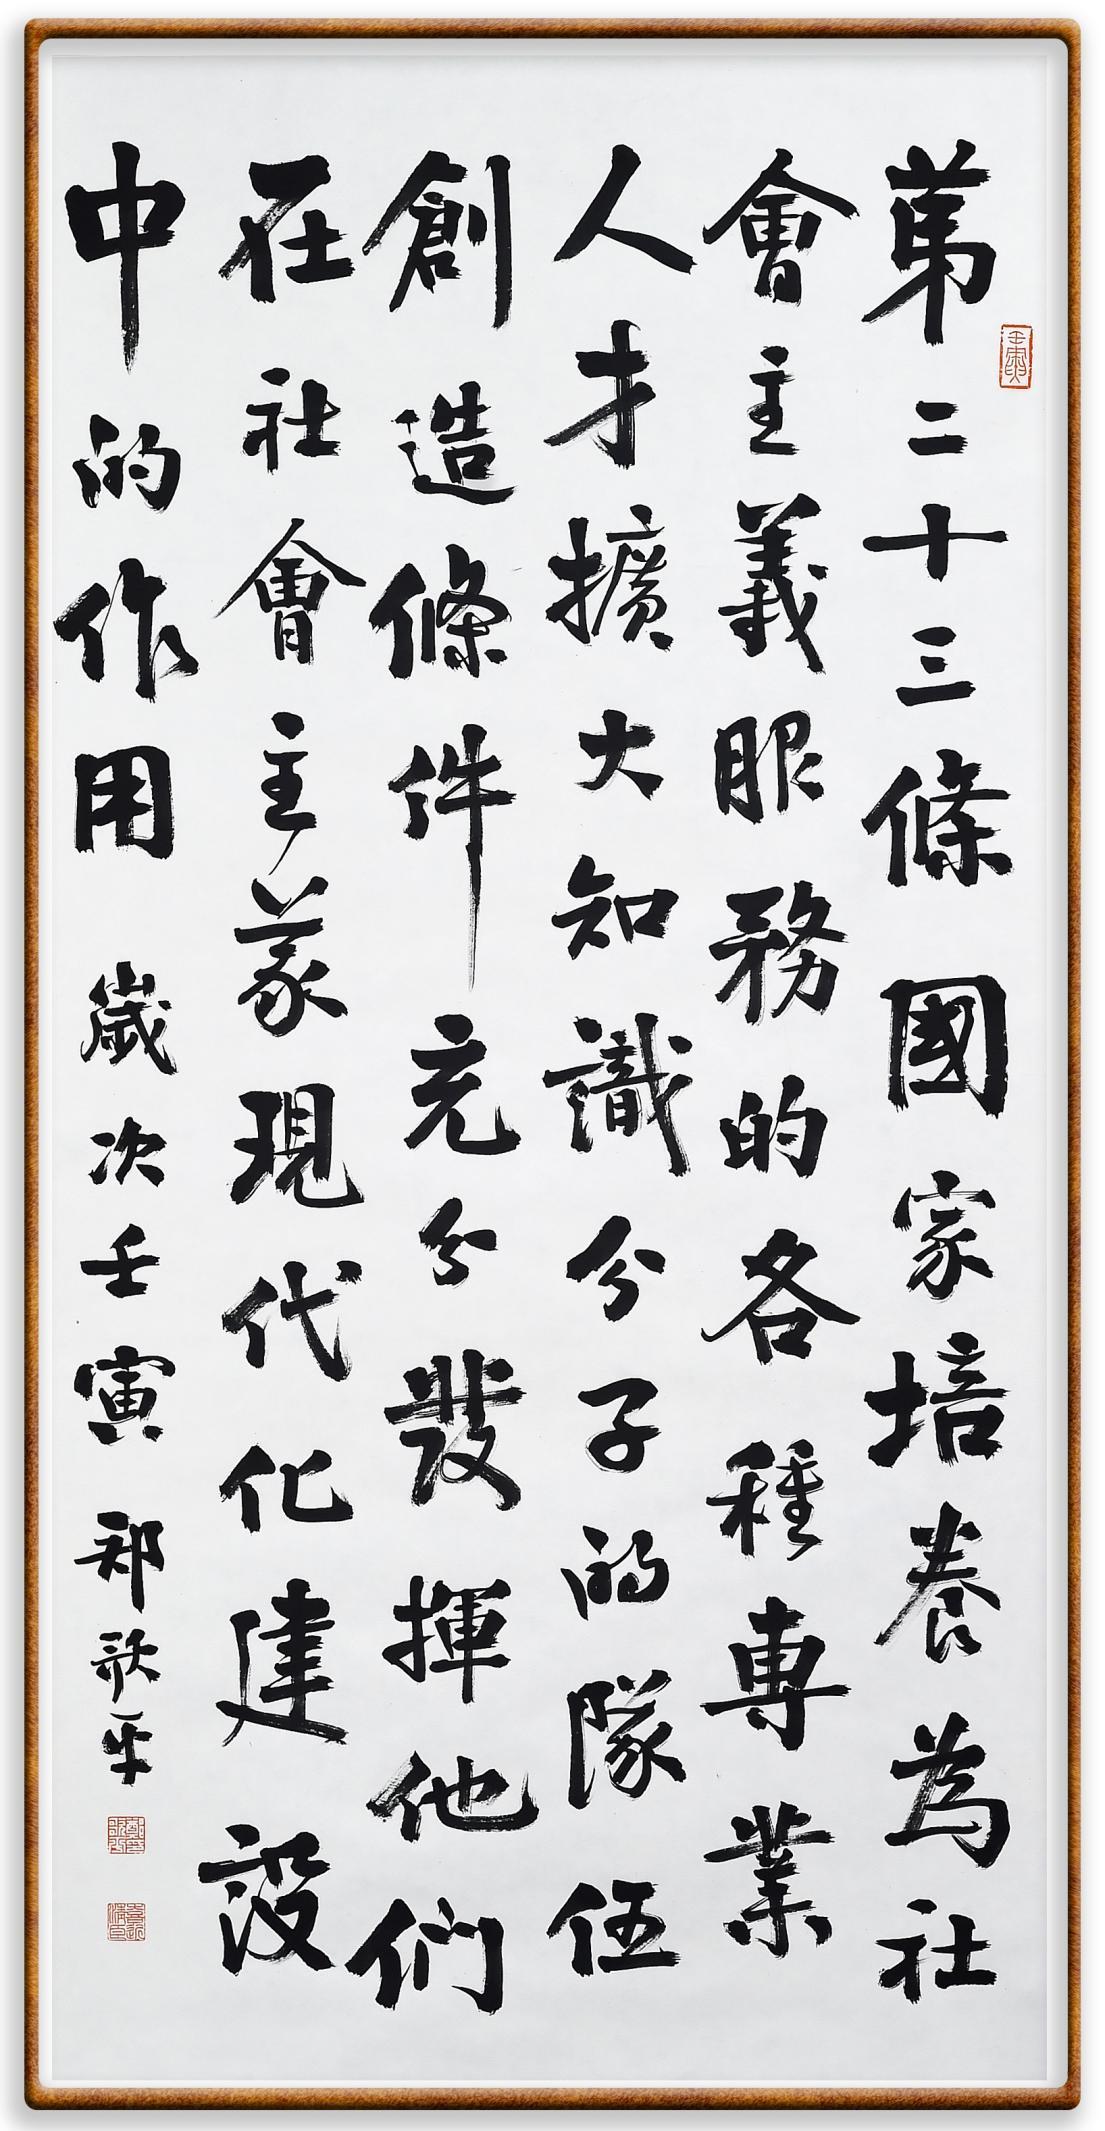 第二十三條國家培養為社
會主義服務的各種專業
人才擴大知識分子的隊伍
創造條件充分發揮他們
在社會主義現代化建設
中的作用 歲次壬寅 郑歌平
壬寅